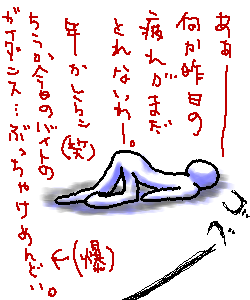 あぁー
何か昨日の
疲れがまだ
とれないわー。
年かしら（笑）
ちうか今日のバイトの
ガイダンス…ぶっちゃけめんどい。
（爆）